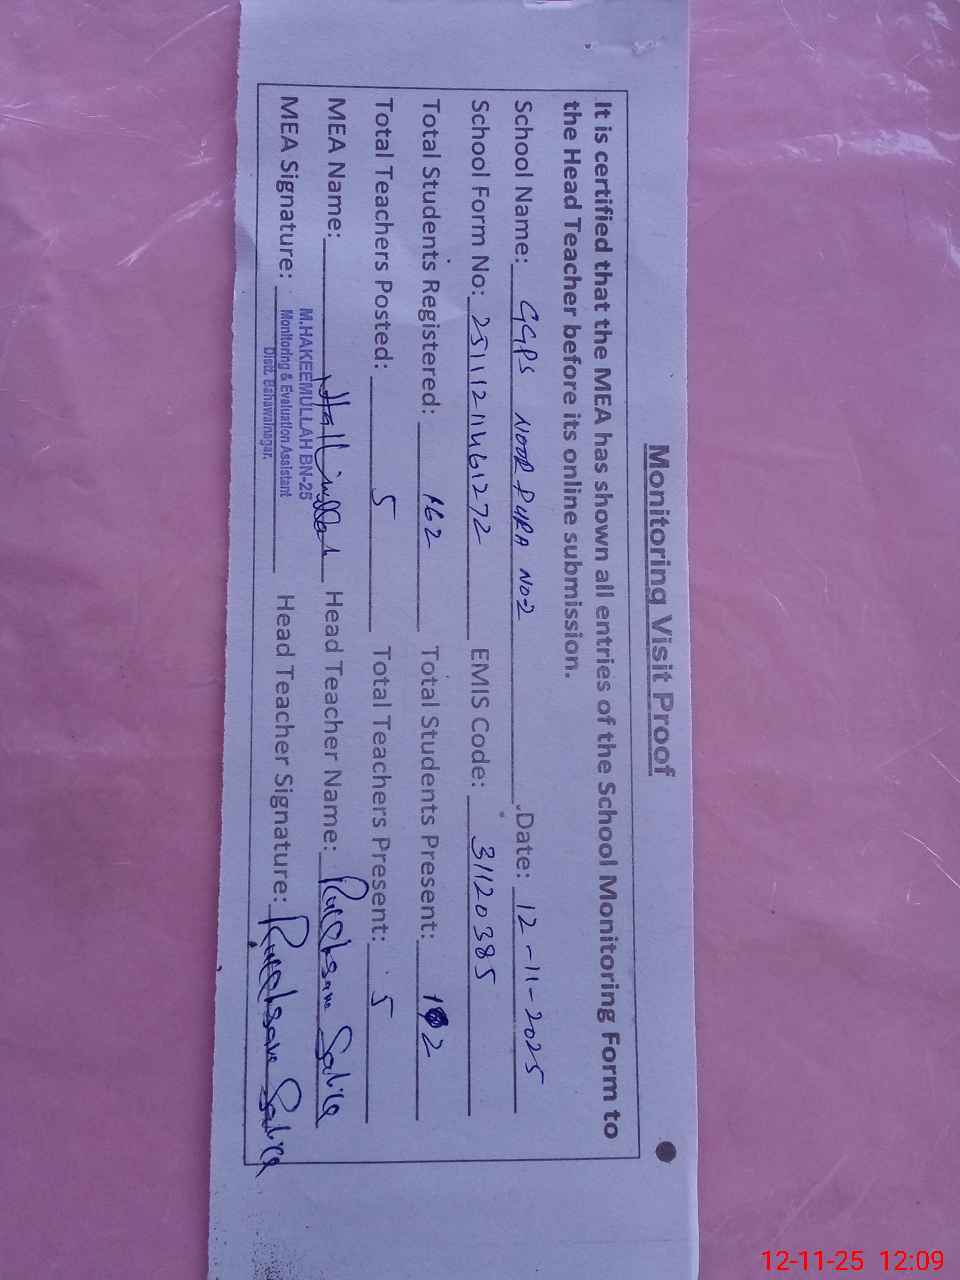 Monitoring Visit Proof
It is certified that the MEA has shown all entries of the School Monitoring Form to
the Head Teacher before its online submission.
School Name: GGPS NOOR PURA NO-2 Date: 12-11-2025
School Form No: 25111211461272 EMIS Code: 31120385
Total Students Registered: 162 Total Students Present: 2
Total Teachers Posted: 5 Total Teachers Present: 5
MEA Name: Head Teacher Name: Rukhsana
MEA Signature: Head Teacher Signature: Rukhsana
M.HAKEEMULLAH BN-25
Monitoring & Evaluation Assistant
Distt. Bahawalnagar.
12-11-25 12:09